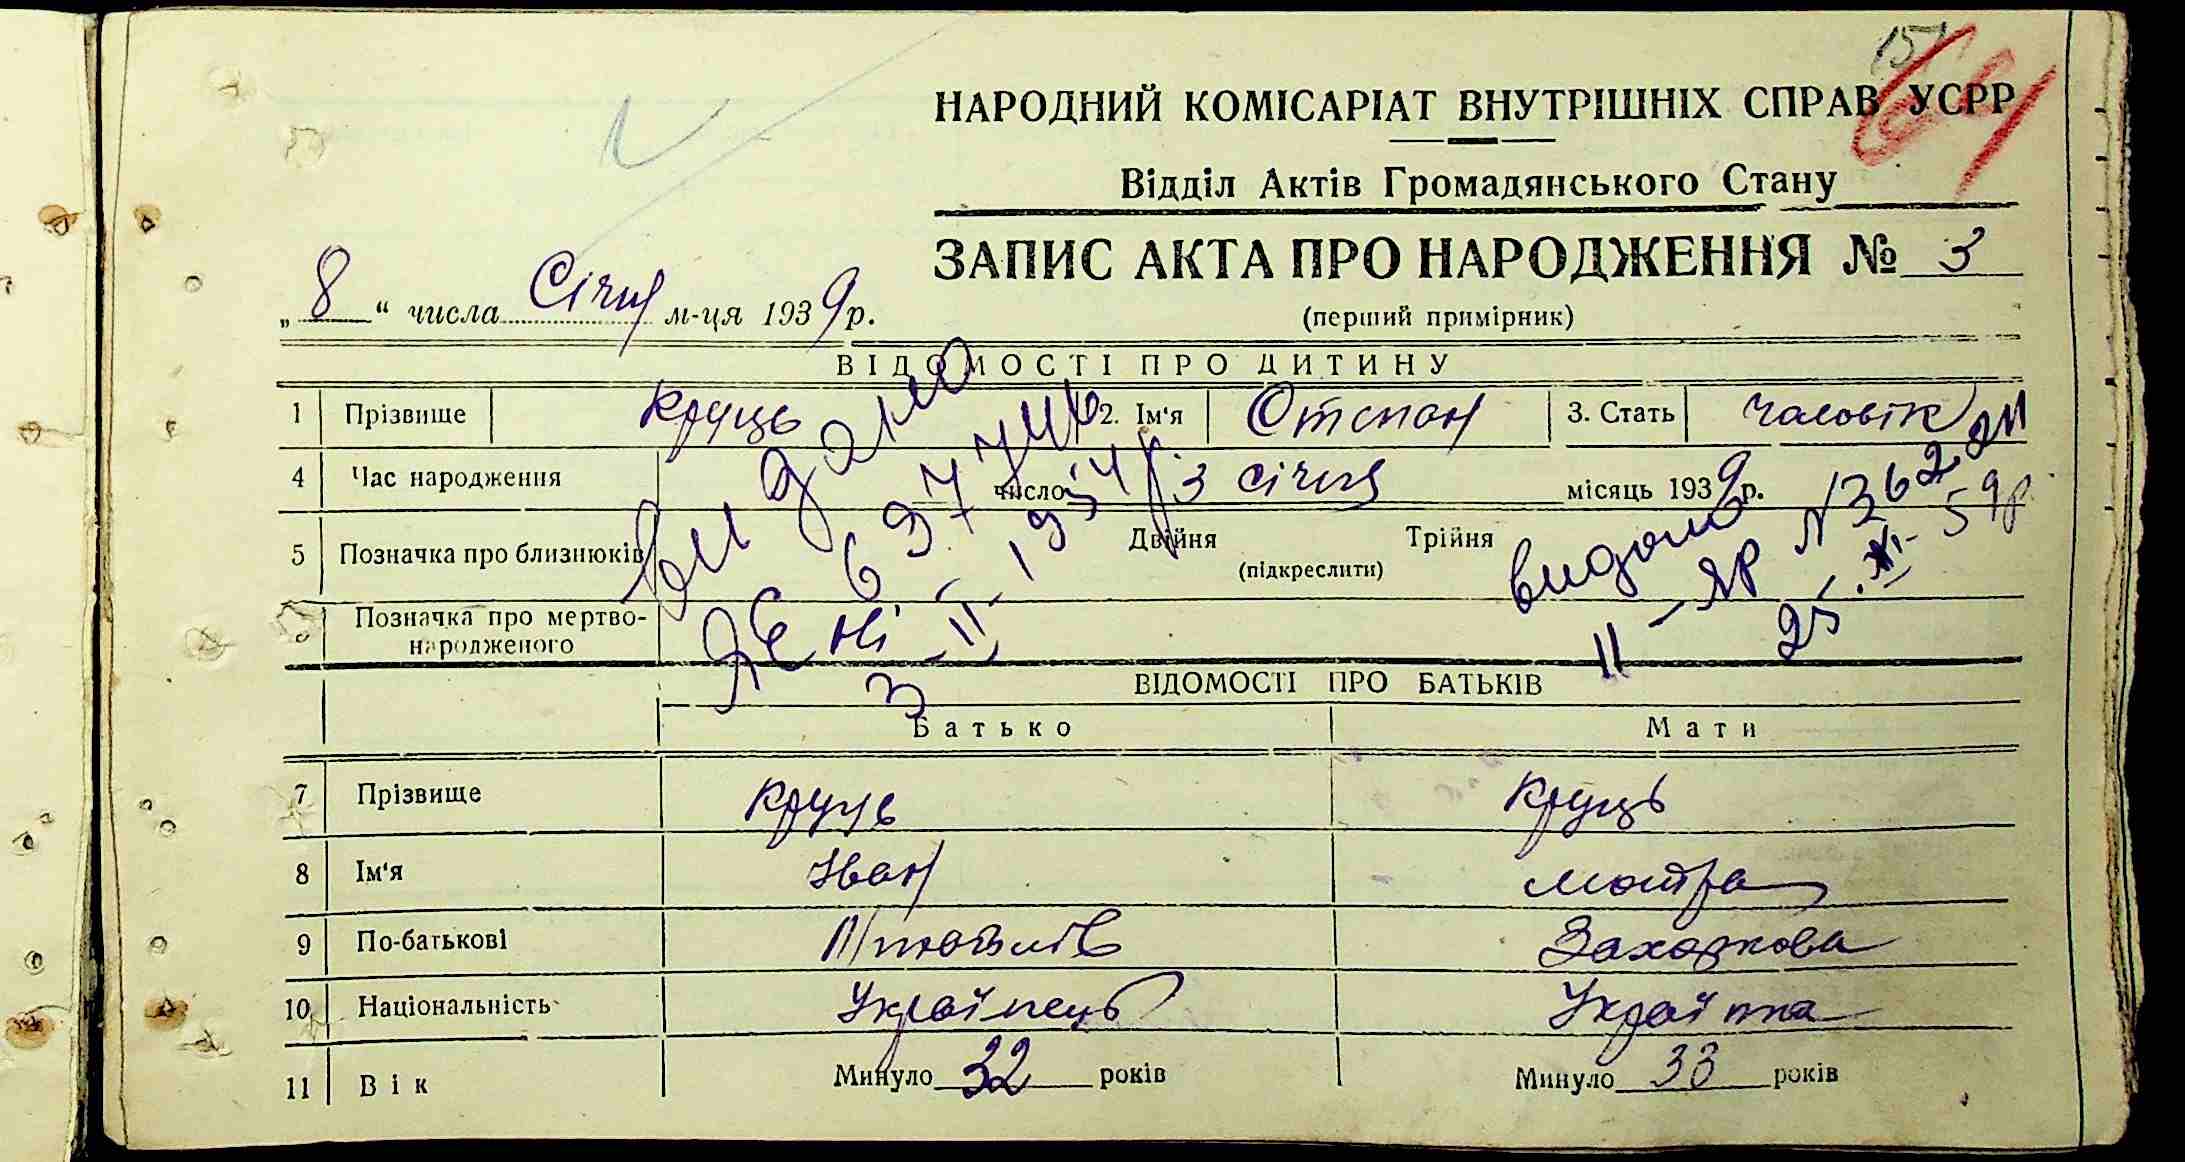 151
64
НАРОДНИЙ КОМІСАРІАТ ВНУТРІШНІХ СПРАВ УСРР
Відділ Актів Громадянського Стану
ЗАПИС АКТА ПРО НАРОДЖЕННЯ № 3
„ 8 “ числа Січня м-ця 1939 р.
(перший примірник)
ВІДОМОСТІ ПРО ДИТИНУ
1 Прізвище Круць 2. Ім'я Отспан 3. Стать чоловік
4 Час народження число 3 січня місяць 1939 р.
5 Позначка про близнюків Двійня Трійня
(підкреслити)
Позначка про мертво-
народженого
видано
видано
II - ЯР №362221
25.XI-59р
ВІДОМОСТІ ПРО БАТЬКІВ
Батько Мати
7 Прізвище Круць Круць
8 Ім'я Іван мотра
9 По-батькові Захаркова
10 Національність Українець Українка
11 Вік Минуло 32 років Минуло 33 років